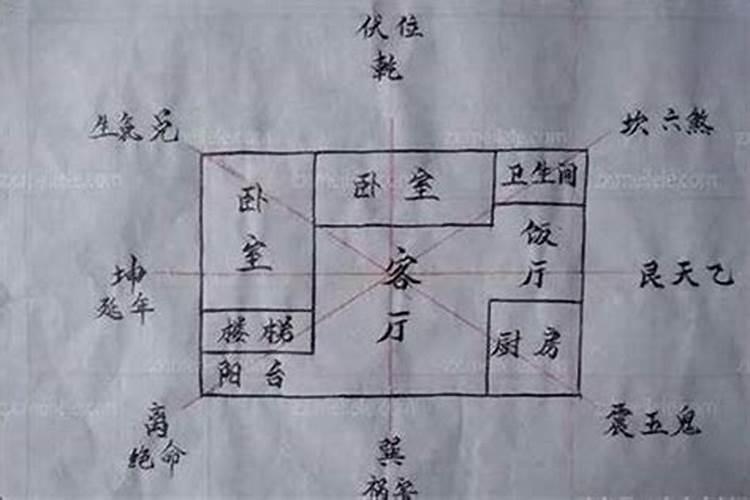 伏位
乾
生气兑
坎六煞
卧室
卧室
卫生间
饭厅
客厅
坤
延年
艮天乙
楼梯
厨房
阳台
离
绝命
震五鬼
巽
祸害